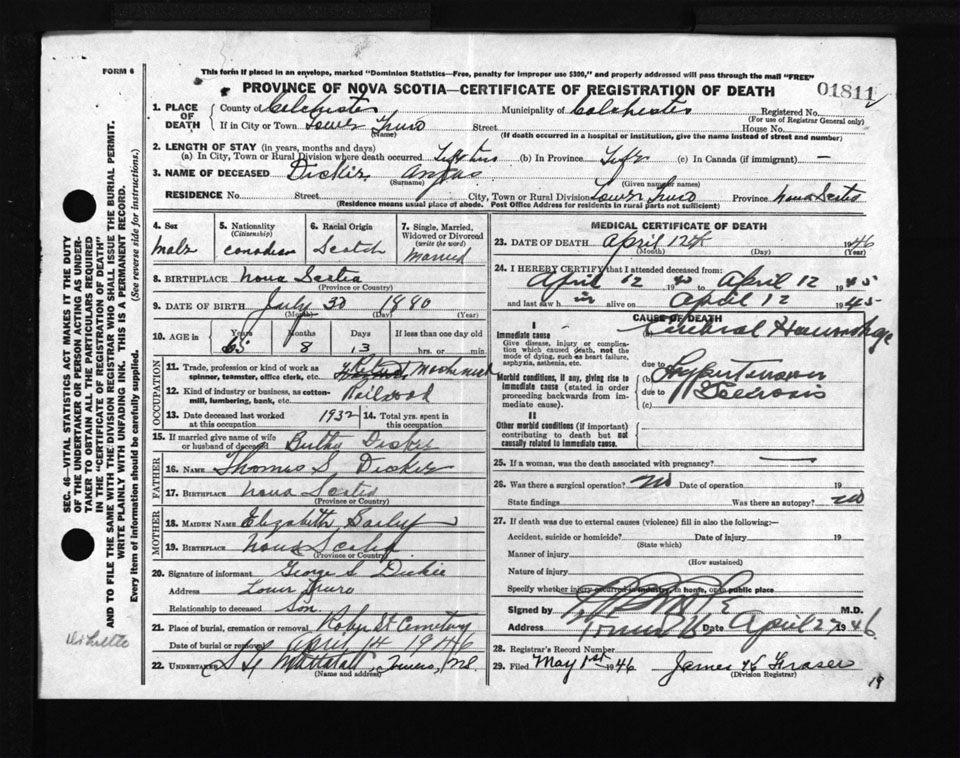 FORM 6
This form if placed in an envelope, marked "Dominion Statistics—Free, penalty for improper use $300," and properly addressed will pass through the mail "FREE"
PROVINCE OF NOVA SCOTIA—CERTIFICATE OF REGISTRATION OF DEATH
01811
1. PLACE OF DEATH County of Colchester Municipality of Colchester Registered No.
(For use of Registrar General only)
If in City or Town Lower Truro Street House No.
(Name) (If death occurred in a hospital or institution, give the name instead of street and number)
2. LENGTH OF STAY (in years, months and days)
(a) In City, Town or Rural Division where death occurred (b) In Province (c) In Canada (if immigrant) —
3. NAME OF DECEASED Dickie Angus
(Surname) (Given name or names)
RESIDENCE No. Street City, Town or Rural Division Lower Truro Province Nova Scotia
(Residence means usual place of abode. Post Office Address for residents in rural parts not sufficient)
4. Sex Male
5. Nationality (Citizenship) Canadian
6. Racial Origin Scotch
7. Single, Married, Widowed or Divorced (write the word) Married
8. BIRTHPLACE Nova Scotia
(Province or Country)
9. DATE OF BIRTH July 30 1880
(Month) (Day) (Year)
10. AGE in Years Months Days If less than one day old
65 8 13 hrs. or min.
OCCUPATION
11. Trade, profession or kind of work as spinner, teamster, office clerk, etc. Machinist
12. Kind of industry or business, as cotton-mill, lumbering, bank, etc.
13. Date deceased last worked at this occupation 1932
14. Total yrs. spent in this occupation
15. If married give name of wife or husband of deceased Dickie
FATHER
16. NAME Thomas S. Dickie
17. BIRTHPLACE Nova Scotia
(Province or Country)
MOTHER
18. MAIDEN NAME Elizabeth
19. BIRTHPLACE Nova Scotia
(Province or Country)
20. Signature of informant George S Dickie
Address Lower Truro
Relationship to deceased Son
21. Place of burial, cremation or removal Robie St Cemetery
Date of burial or removal April 14 1946
22. UNDERTAKER Mattatall, Truro, N.S.
(Name and address)
MEDICAL CERTIFICATE OF DEATH
23. DATE OF DEATH April 12th 1946
(Month) (Day) (Year)
24. I HEREBY CERTIFY that I attended deceased from:
April 12 19 to April 12 1945
and last saw him alive on April 12 1945
CAUSE OF DEATH
I
Immediate cause
Give disease, injury or complication which caused death, not the mode of dying, such as heart failure, asphyxia, asthenia, etc.
Cerebral Haemorrhage
due to
Morbid conditions, if any, giving rise to immediate cause (stated in order proceeding backwards from immediate cause).
(b) Hypertension
due to Sclerosis
(c)
II
Other morbid conditions (if important) contributing to death but not causally related to immediate cause.
25. If a woman, was the death associated with pregnancy? —
26. Was there a surgical operation? No Date of operation 19
State findings Was there an autopsy? No
27. If death was due to external causes (violence) fill in also the following:—
Accident, suicide or homicide? Date of injury 19
(State which)
Manner of injury
(How sustained)
Nature of injury
Specify whether injury occurred in industry, in home, or in public place
Signed by M.D.
Address Truro Date April 27 1946
28. Registrar's Record Number
29. Filed May 1st 1946 James K Fraser
(Division Registrar)
19
SEC. 46—VITAL STATISTICS ACT MAKES IT THE DUTY OF THE UNDERTAKER OR PERSON ACTING AS UNDERTAKER TO OBTAIN ALL THE PARTICULARS REQUIRED IN THE "CERTIFICATE OF REGISTRATION OF DEATH"
AND TO FILE THE SAME WITH THE DIVISION REGISTRAR WHO SHALL ISSUE THE BURIAL PERMIT.
WRITE PLAINLY WITH UNFADING INK. THIS IS A PERMANENT RECORD.
Every item of information should be carefully supplied. (See reverse side for instructions.)